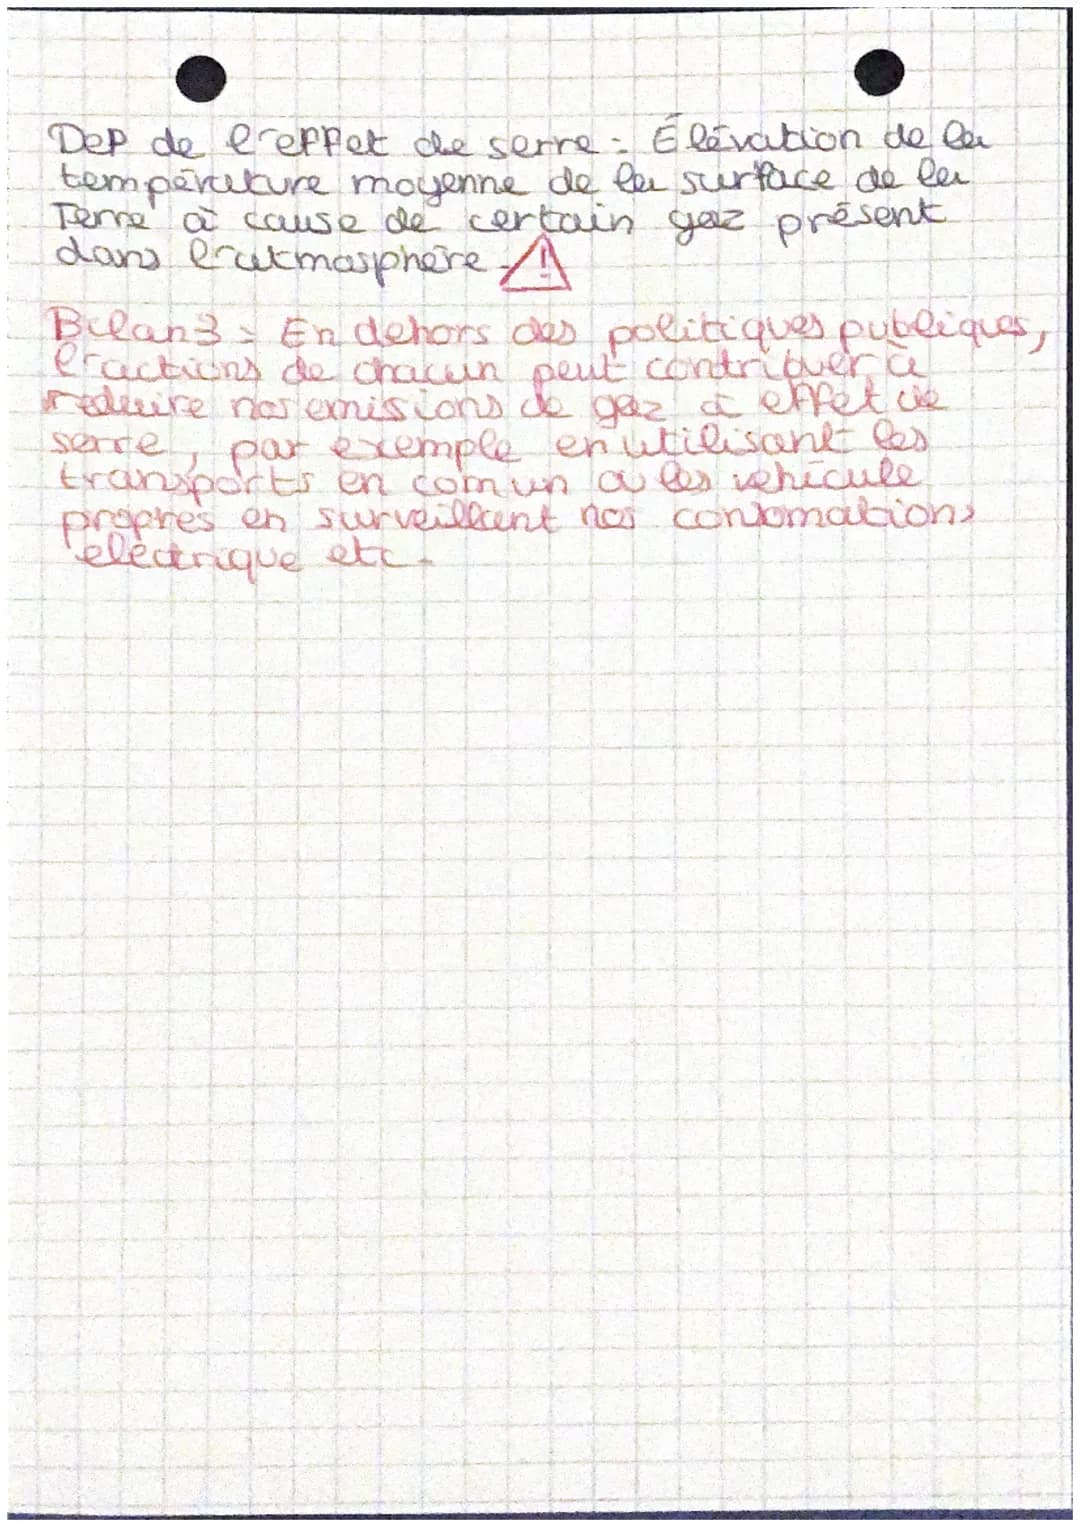 Def de l'effet de serre : Élévation de la
température moyenne de la surface de la
Terre à cause de certain gaz présent
dans l'atmosphère. !
Bilan 3 : En dehors des politiques publiques,
l'actions de chacun peut contribuer a
reduire nos emissions de gaz à effet de
serre, par exemple en utilisant les
transports en comun a les vehicule
propres en surveillant nos consomations
electrique etc.